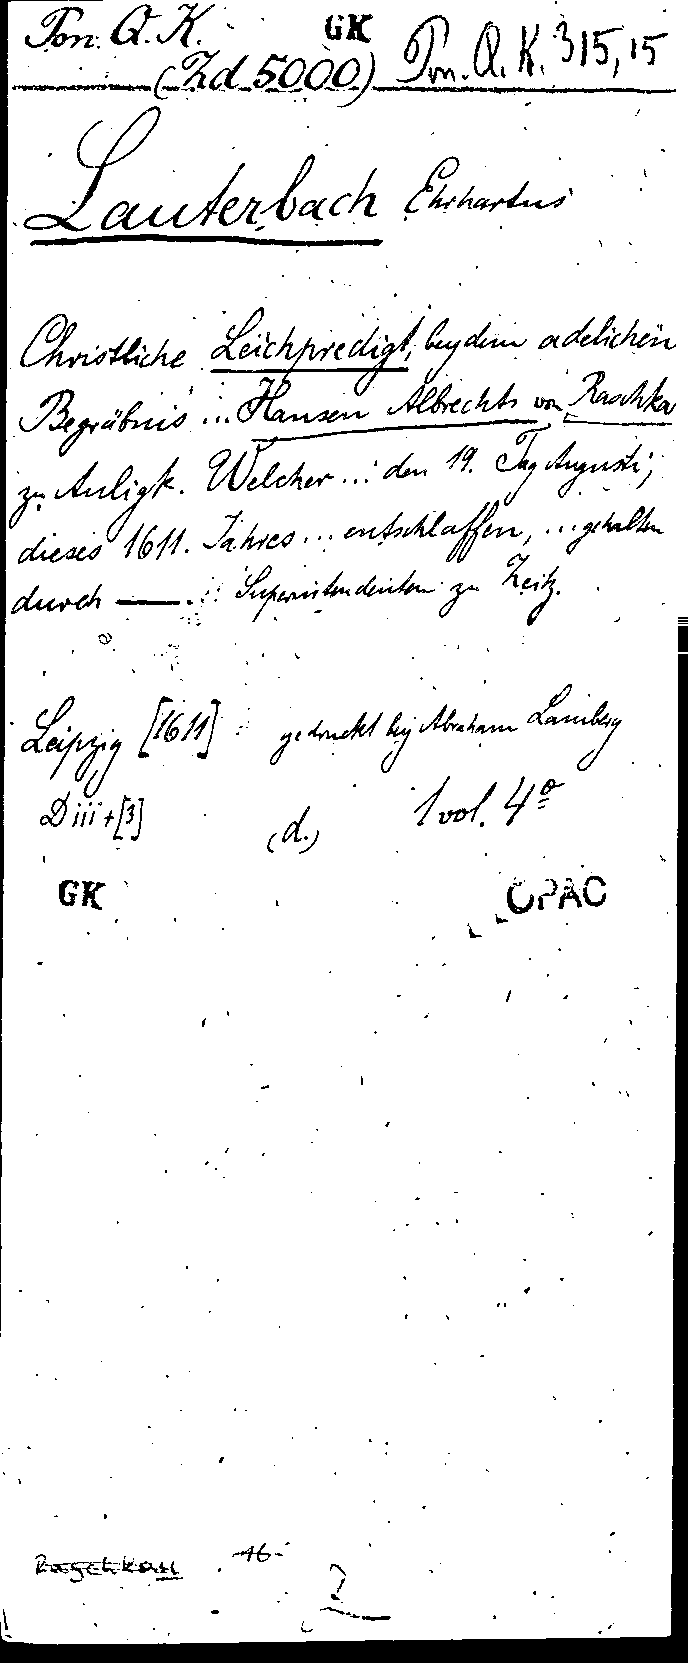 Pon. Q. K. GK
(Zd 5000) Pon. Q. K. 315,15
Lauterbach Ehrhartus
Christliche Leichpredigt, bey dem adelichen
Begräbnis ... Hansen Albrechts von Raschka
zu Auligk. Welcher ... den 19. Tag Augusti,
dieses 1611. Jahres ... entschlaffen, ... gehalten
durch — ... Superintendenten zu Zeitz.
Leipzig [1611] gedruckt bey Abraham Lamberg
D iii + [3] (d.) 1 vol. 4º
GK OPAC
Raschkau 16